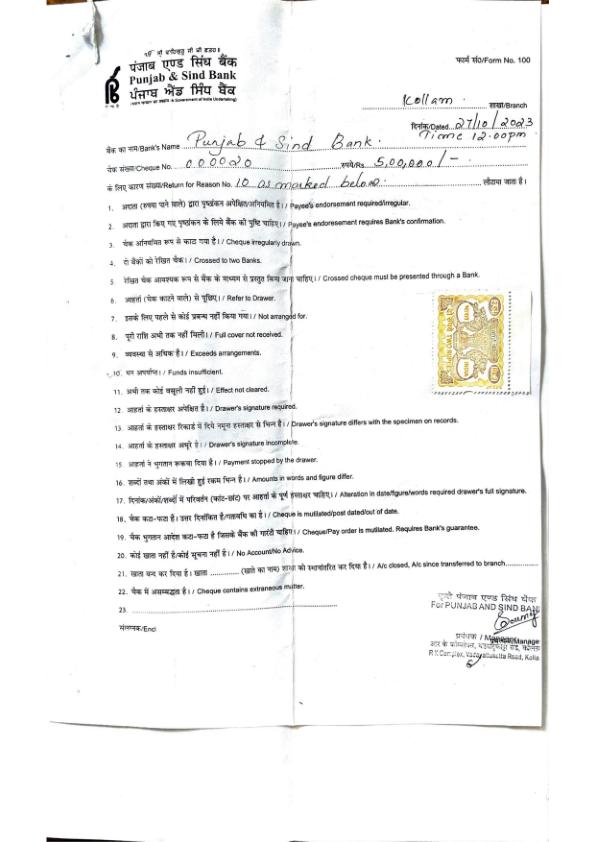 पंजाब एण्ड सिंध बैंक
Punjab & Sind Bank
ਪੰਜਾਬ ਐਂਡ ਸਿੰਧ ਬੈਂਕ
(A Government of India Undertaking)
फार्म सं0/Form No. 100
Kollam शाखा/Branch
दिनांक/Dated 27/10/2023
Time 12.00pm
बैंक का नाम/Bank's Name Punjab & Sind Bank.
चैक संख्या/Cheque No. 000020 रुपये/Rs 5,00,000/-
के लिए कारण संख्या/Return for Reason No. 10 as marked below. लौटाया जाता है।
1. अदाता (रुपया पाने वाले) द्वारा पृष्ठांकन अपेक्षित/अनियमित है। / Payee's endorsement required/irregular.
2. अदाता द्वारा किए गए पृष्ठांकन के लिये बैंक की पुष्टि चाहिए। / Payee's endorsement requires Bank's confirmation.
3. चैक अनियमित रूप से काटा गया है। / Cheque irregularly drawn.
4. दो बैंकों को रेखित चैक। / Crossed to two Banks.
5. रेखित चैक आवश्यक रूप से बैंक के माध्यम से प्रस्तुत किया जाना चाहिए। / Crossed cheque must be presented through a Bank.
6. आहर्ता (चेक काटने वाले) से पूछिए। / Refer to Drawer.
7. इसके लिए पहले से कोई प्रबन्ध नहीं किया गया। / Not arranged for.
8. पूरी राशि अभी तक नहीं मिली। / Full cover not received.
9. व्यवस्था से अधिक है। / Exceeds arrangements.
10. धन अपर्याप्त। / Funds insufficient.
11. अभी तक कोई वसूली नहीं हुई। / Effect not cleared.
12. आहर्ता के हस्ताक्षर अपेक्षित है। / Drawer's signature required.
13. आहर्ता के हस्ताक्षर रिकार्ड में दिये नमूना हस्ताक्षर से भिन्न है। / Drawer's signature differs with the specimen on records.
14. आहर्ता के हस्ताक्षर अधूरे है। / Drawer's signature incomplete.
15. आहर्ता ने भुगतान रूकवा दिया है। / Payment stopped by the drawer.
16. शब्दों तथा अंकों में लिखी हुई रकम भिन्न है। / Amounts in words and figure differ.
17. दिनांक/अंकों/शब्दों में परिवर्तन (कांट-छांट) पर आहर्ता के पूर्ण हस्ताक्षर चाहिए। / Alteration in date/figure/words required drawer's full signature.
18. चैक कटा-फटा है। उत्तर दिनांकित है/गतावधि का है। / Cheque is mutilated/post dated/out of date.
19. चैक भुगतान आदेश कटा-फटा है जिसके बैंक की गारंटी चाहिए। / Cheque/Pay order is mutilated. Requires Bank's guarantee.
20. कोई खाता नहीं है/कोई सूचना नहीं है। / No Account/No Advice.
21. खाता बन्द कर दिया है। खाता ............ (खाते का नाम) शाखा को स्थानांतरित कर दिया है। / A/c closed, A/c since transferred to branch............
22. चैक में असम्बद्धता है। / Cheque contains extraneous matter.
23. ............
संलग्नक/Encl
कृते पंजाब एण्ड सिंध बैंक
For PUNJAB AND SIND BANK
प्रबंधक / Manager
R K Complex, Vadayattukotta Road, Kolla